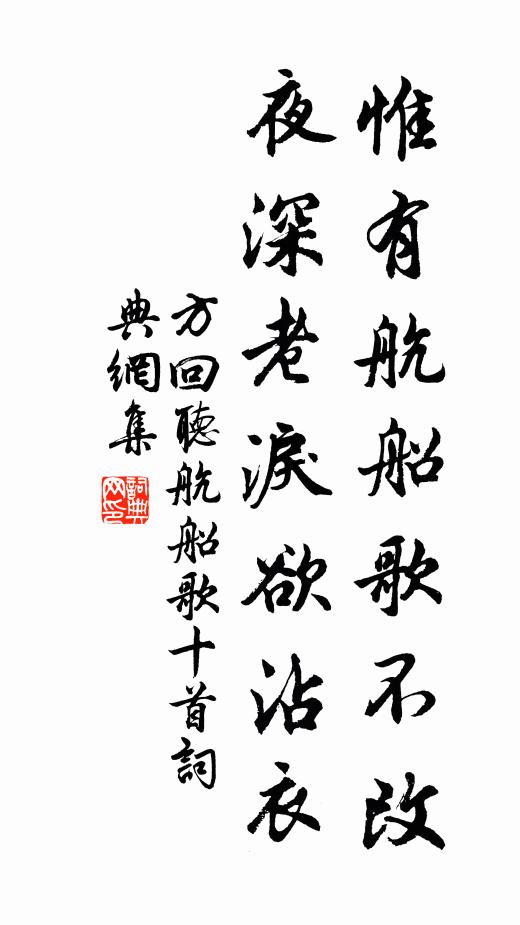 惟有航船歌不改
夜深老淚欲沾衣
方回聽航船歌十首詞
典網集
詞典網印